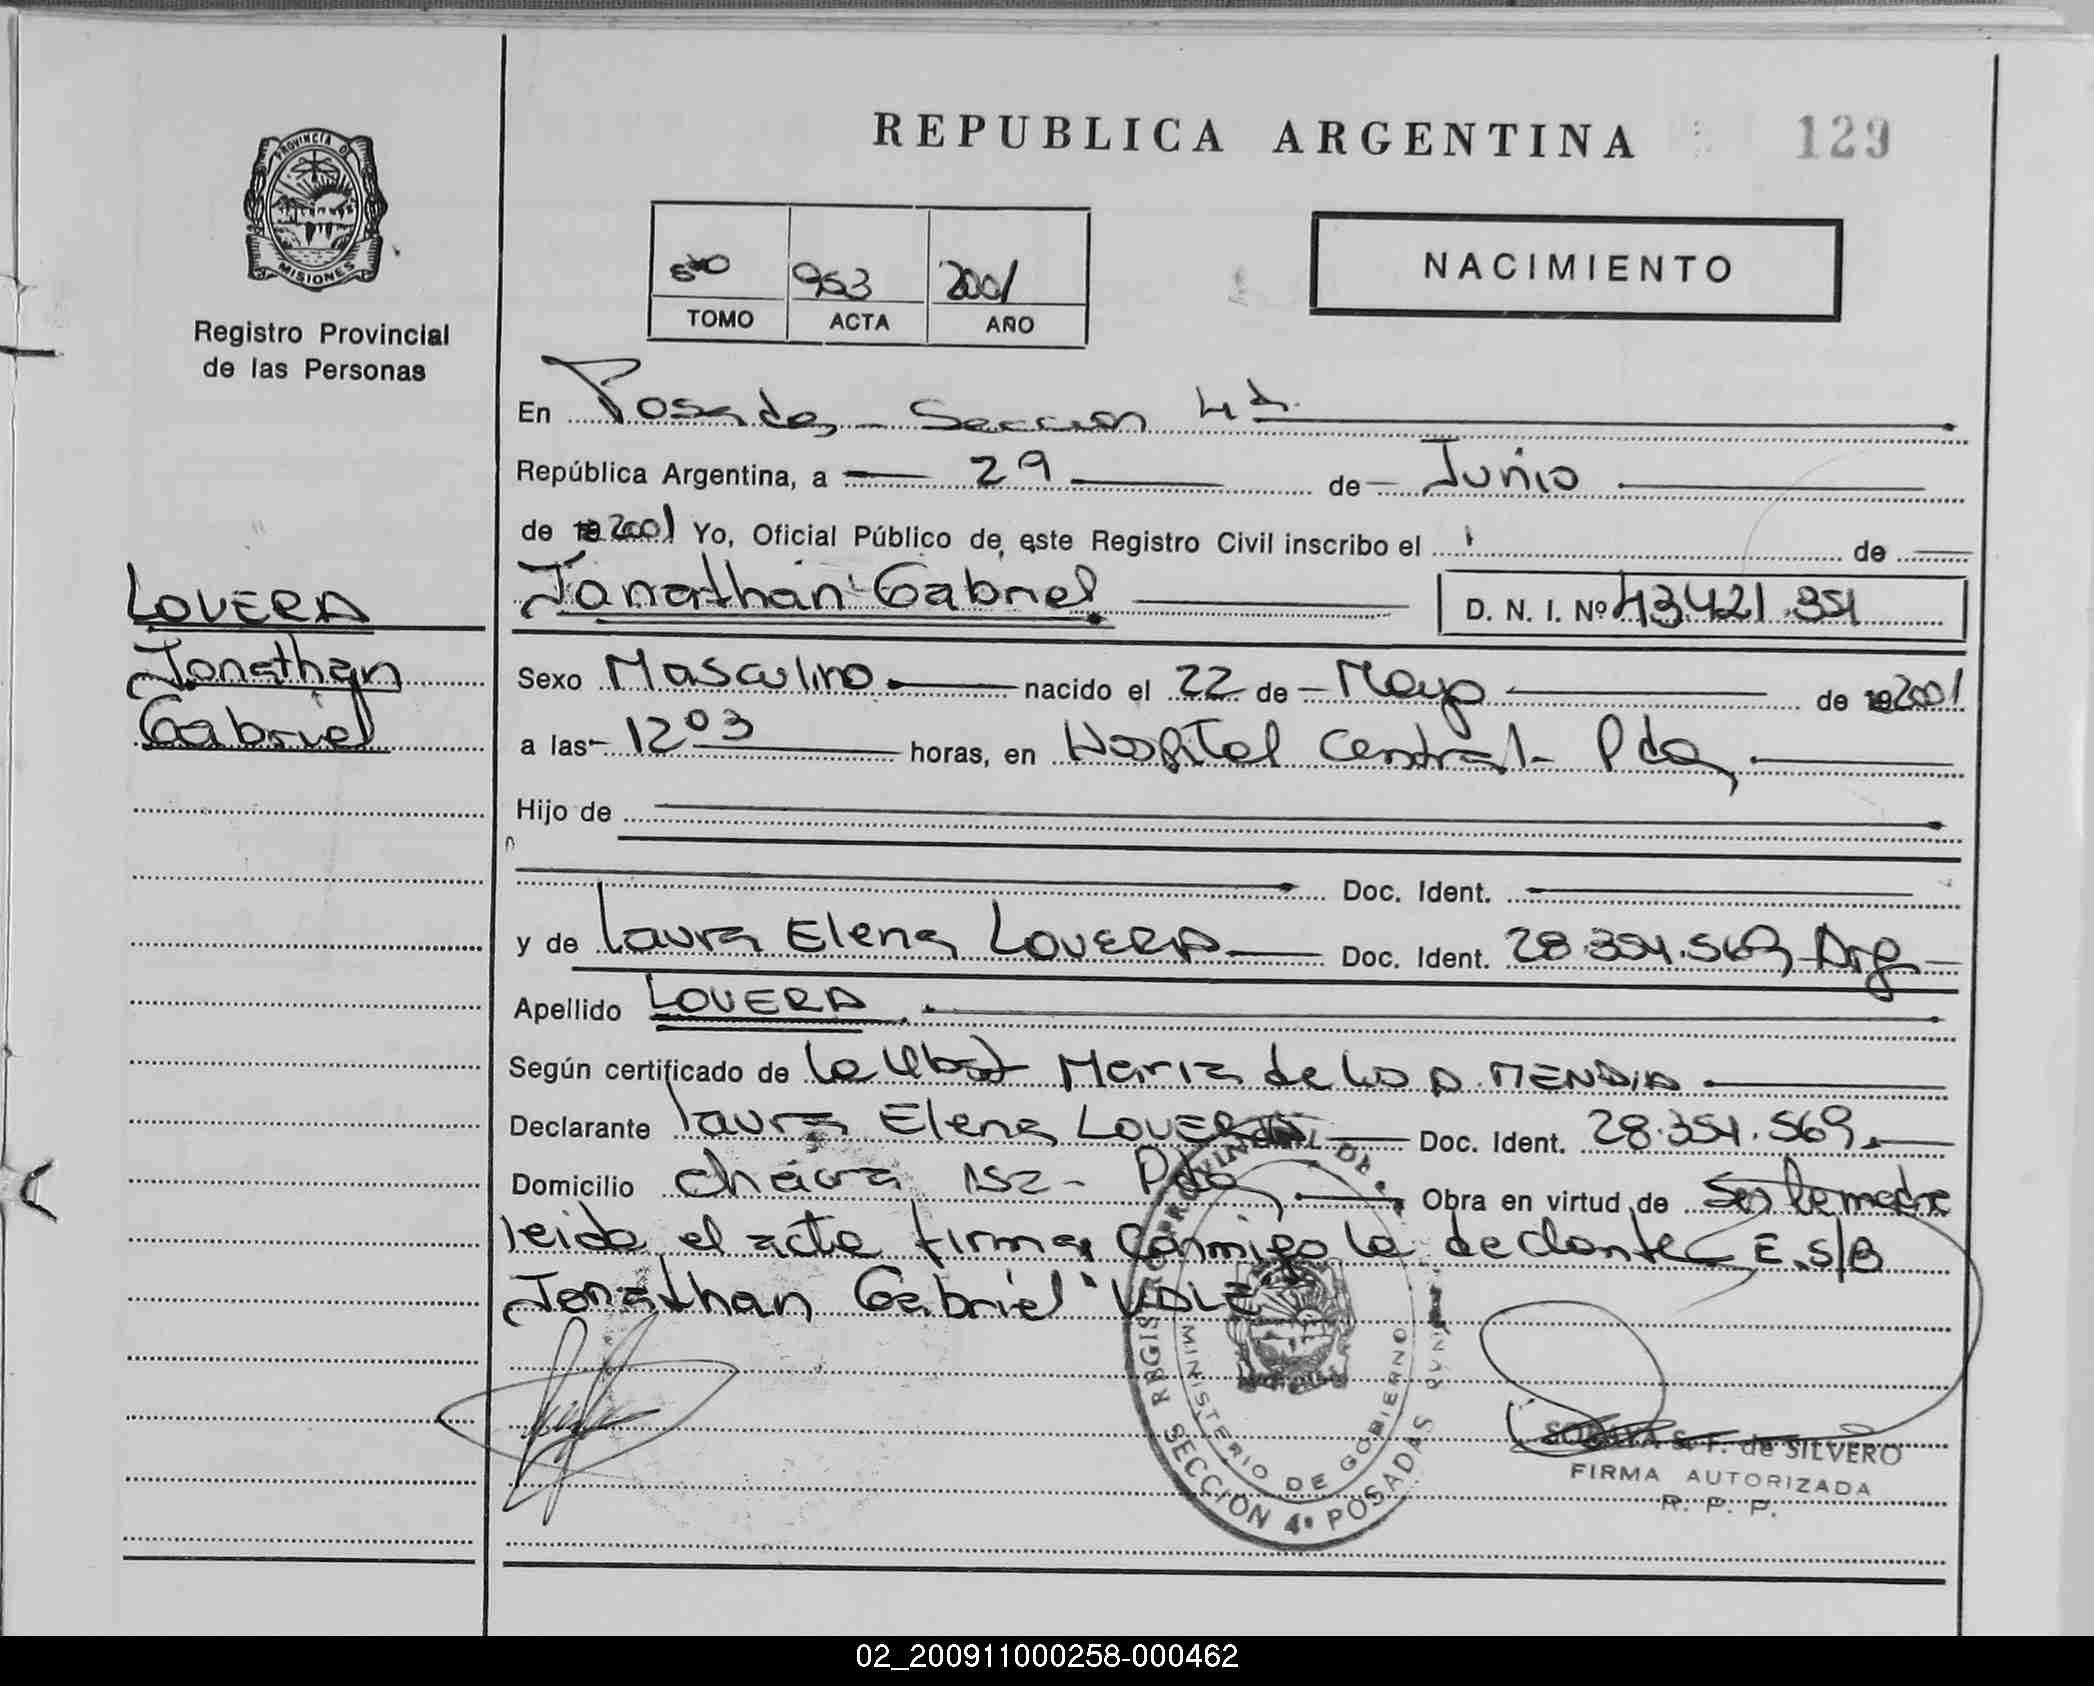 PROVINCIA DE
MISIONES
Registro Provincial
de las Personas
LOVERA
Jonathan
Gabriel
REPUBLICA ARGENTINA 129
953 2001
TOMO ACTA AÑO
NACIMIENTO
En Posadas - Sección 4ta.
República Argentina, a 29 de Junio
de 19 2001 Yo, Oficial Público de este Registro Civil inscribo el de
Jonathan Gabriel D. N. I. Nº 43.421.351
Sexo Masculino nacido el 22 de Mayo de 19 2001
a las 12 03 horas, en Hospital Central - Pdas
Hijo de
Doc. Ident.
y de Laura Elena LOVERA Doc. Ident. 28.354.569 Arg
Apellido LOVERA
Según certificado de la Obst María de Los A. MENDIA
Declarante Laura Elena LOVERA Doc. Ident. 28.354.569
Domicilio 152 - Pdas Obra en virtud de Ser la madre
leida el acta firma conmigo la declarante E.S/B
Jonathan Gabriel VALE
REGISTRO PROVINCIAL DE
MINISTERIO DE GOBIERNO
SECCIÓN 4ª POSADAS
SORAYA S. F. de SILVERO
FIRMA AUTORIZADA
R. P. P.
02_200911000258-000462